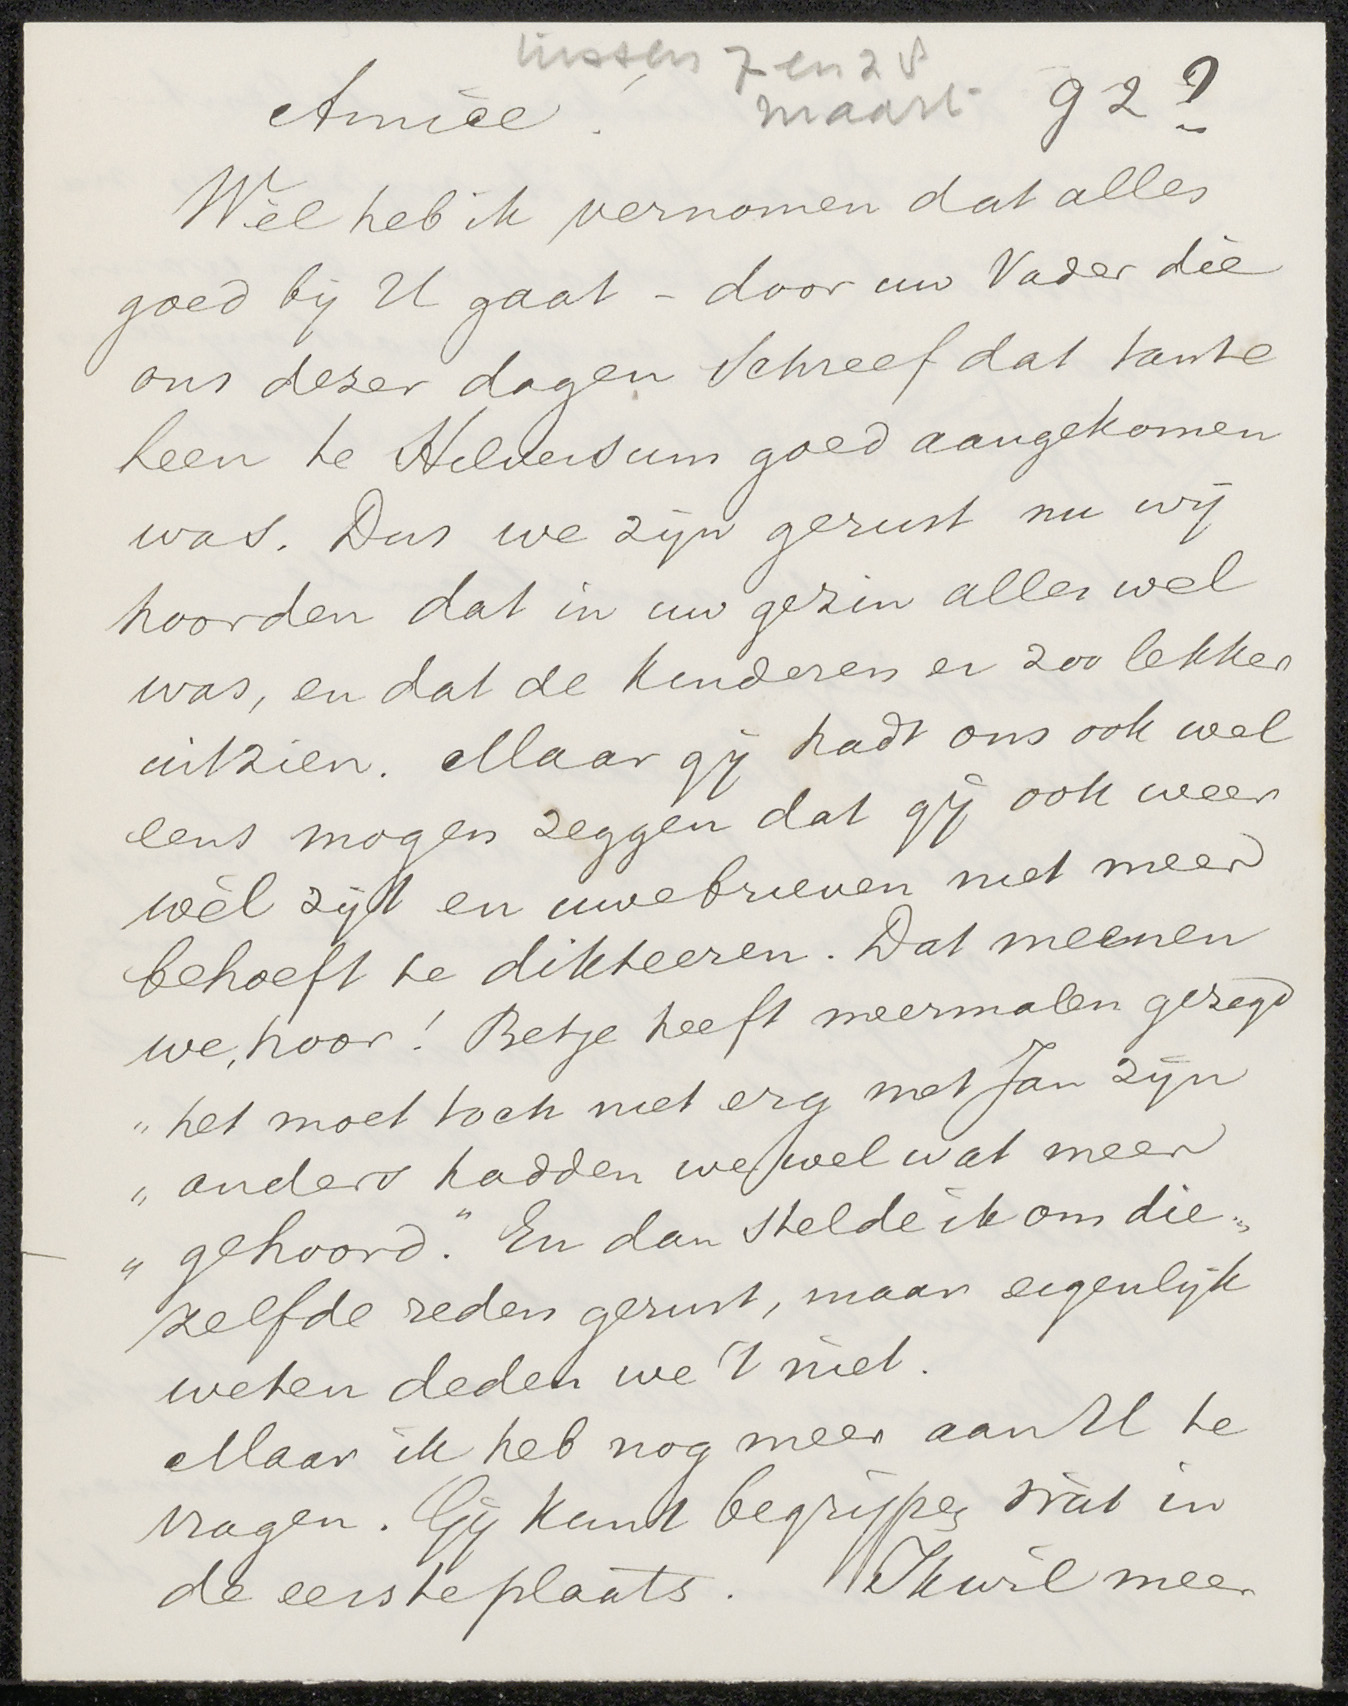 tussen 7 en 28
maart 92?
Amice!
Wèl heb ik vernomen dat alles
goed bij U gaat - door uw Vader die
ons dezer dagen schreef dat tante
leen te Hilversum goed aangekomen
was. Dus we zijn gerust nu wij
hoorden dat in uw gezin alles wel
was, en dat de kinderen er zoo lekker
uitzien. Maar gij hadt ons ook wel
eens mogen zeggen dat gij ook weer
wèl zijt en uwe brieven niet meer
behoeft te dikteeren. Dat meenen
we, hoor! Betje heeft meermalen gezegd
"het moet toch niet erg met Jan zijn
"anders hadden we wel wat meer
"gehoord." En dan stelde ik om die-
zelfde reden gerust, maar eigenlijk
weten deden we 't niet.
Maar ik heb nog meer aan U te
vragen. Gij kunt begrijpen wat in
de eerste plaats. Ik wil meer